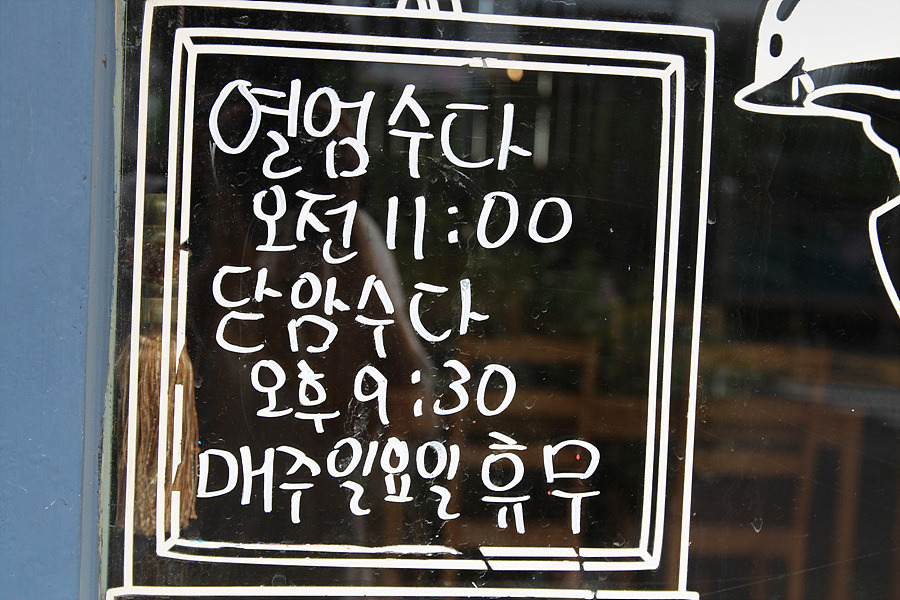 열엄수다
오전 11:00
닫암수다
오후 9:30
매주일요일 휴무